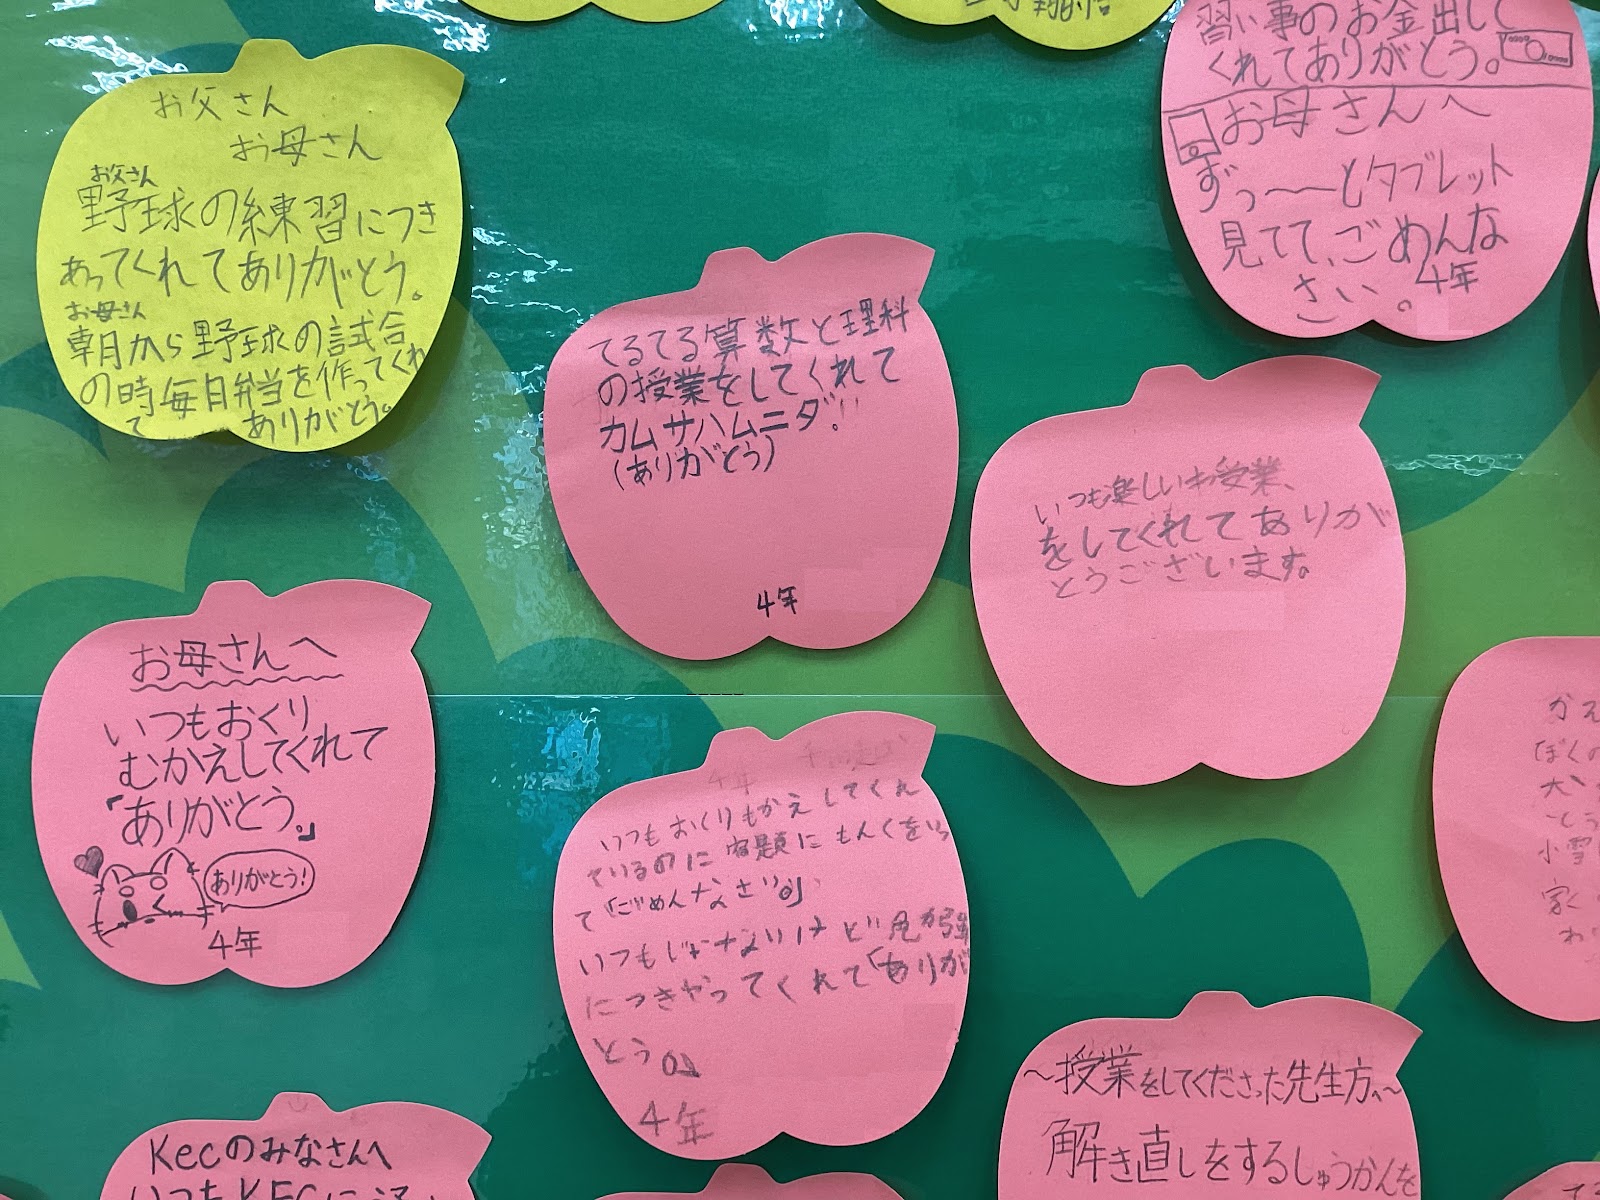 お父さん
お母さん
お父さん
野球の練習につき
あってくれてありがとう。
お母さん
朝から野球の試合
の時毎日弁当を作ってくれ
て ありがとう。
習い事のお金出して
くれてありがとう。
お母さんへ
ずっ〜〜とタブレット
見てて、ごめんな
さい。4年
てるてる算数と理科
の授業をしてくれて
カムサハムニダ!!
(ありがとう)
4年
いつも楽しいお授業、
をしてくれてありが
とうございます。
お母さんへ
いつもおくり
むかえしてくれて
「ありがとう。」
ありがとう!
4年
4年
いつもおくりむかえしてくれ
ているのに宿題にもんくをいっ
て「ごめんなさい。」
いつもじゃないけど勉強
につきやってくれて「ありが
とう。」
4年
ぼくの
小雪
家
〜授業をしてくださった先生方へ〜
解き直しをするしゅうかんを
Kecのみなさんへ
いつもKECに